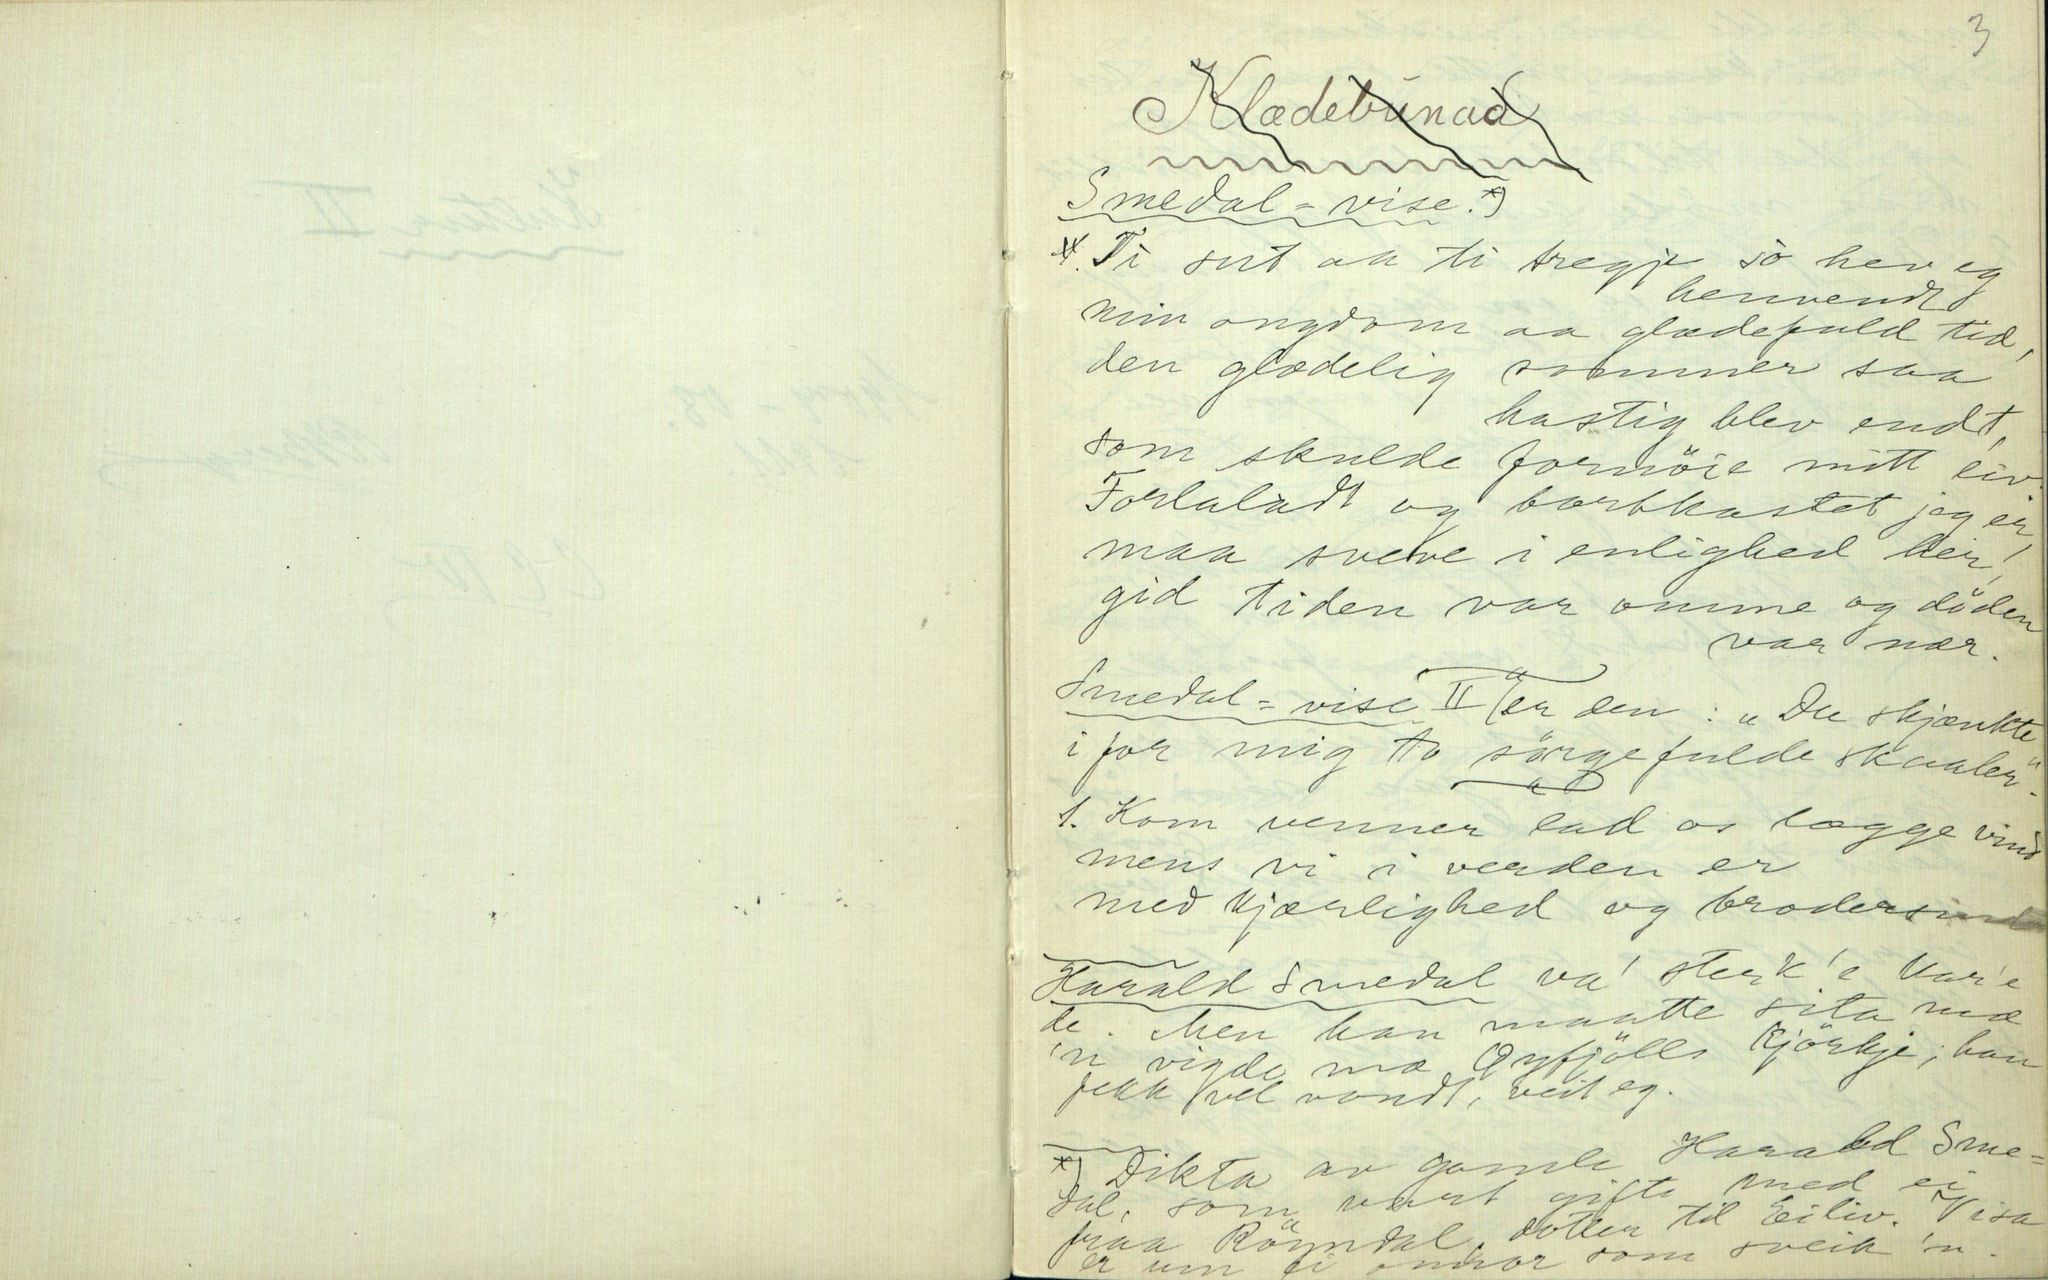 3
Klædebunad
Smedal-vise. *)
1. Ti sut aa ti tregje so hev eg
henvendt
min ongdom aa glædefuld tid,
den glædelig sommer saa
hastig blev endt,
som skulde fornöie mitt liv.
Forladt og bortkastet jeg er,
maa sveve i enlighed her,
gid tiden var omme og döden
var nær.
Smedal-vise II er den: „Du skjænkte
i for mig to sörgefulde skaaler".
1. Kom venner lad os lægge vind
mens vi i verden er
med kjærlighed og brodersind
Harald Smedal va' sterk'e kar'e
de. Men han maatte sita mæ
'n vigde mæ Öyfjölls kjörkje; han
fekk vel vondt, veit eg.
*) Dikta av gamle Harald Sme-
dal, som vart gift med ei
fraa Rönndal, dotter til Eiliv. Visa
er um ei onnor som sveik 'n.
Kultur II
1907-08.
1911.